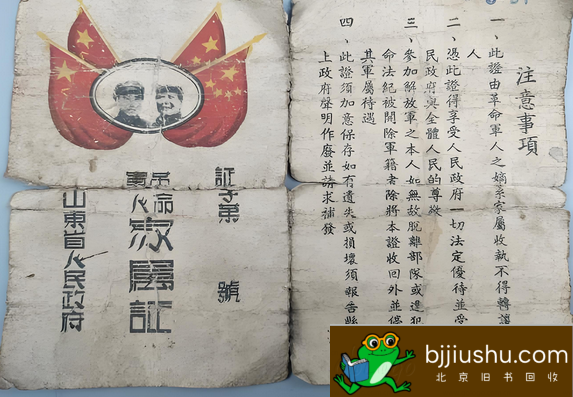 注意事項
一、此證由革命軍人之嫡系家屬收執不得轉讓
人
二、憑此證得享受人民政府一切法定優待並受
民政府與全體人民的尊敬
三、參加解放軍之本人如無故脫離部隊或違犯
命法紀被開除軍籍者除將本證收回外並停
其軍屬待遇
四、此證須加意保存如有遺失或損壞須報告縣
上政府聲明作廢並請求補發
証字第 號
革命軍人家屬証
山東省人民政府
bjjiushu.com
北京旧书回收